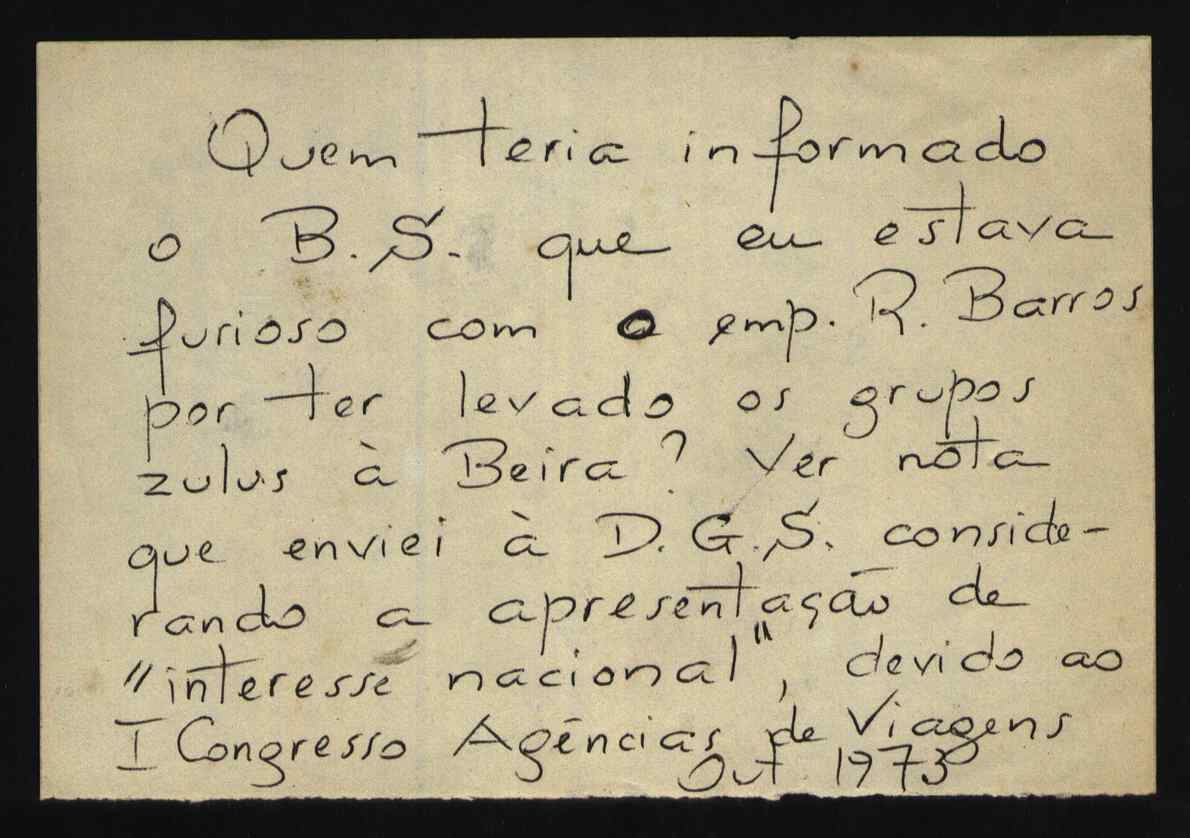 Quem teria informado
o B.S. que eu estava
furioso com o emp. R. Barros
por ter levado os grupos
zulus à Beira? Ver nota
que enviei à D.G.S. conside-
rando a apresentação de
"interesse nacional", devido ao
I Congresso Agências de Viagens
Out 1973